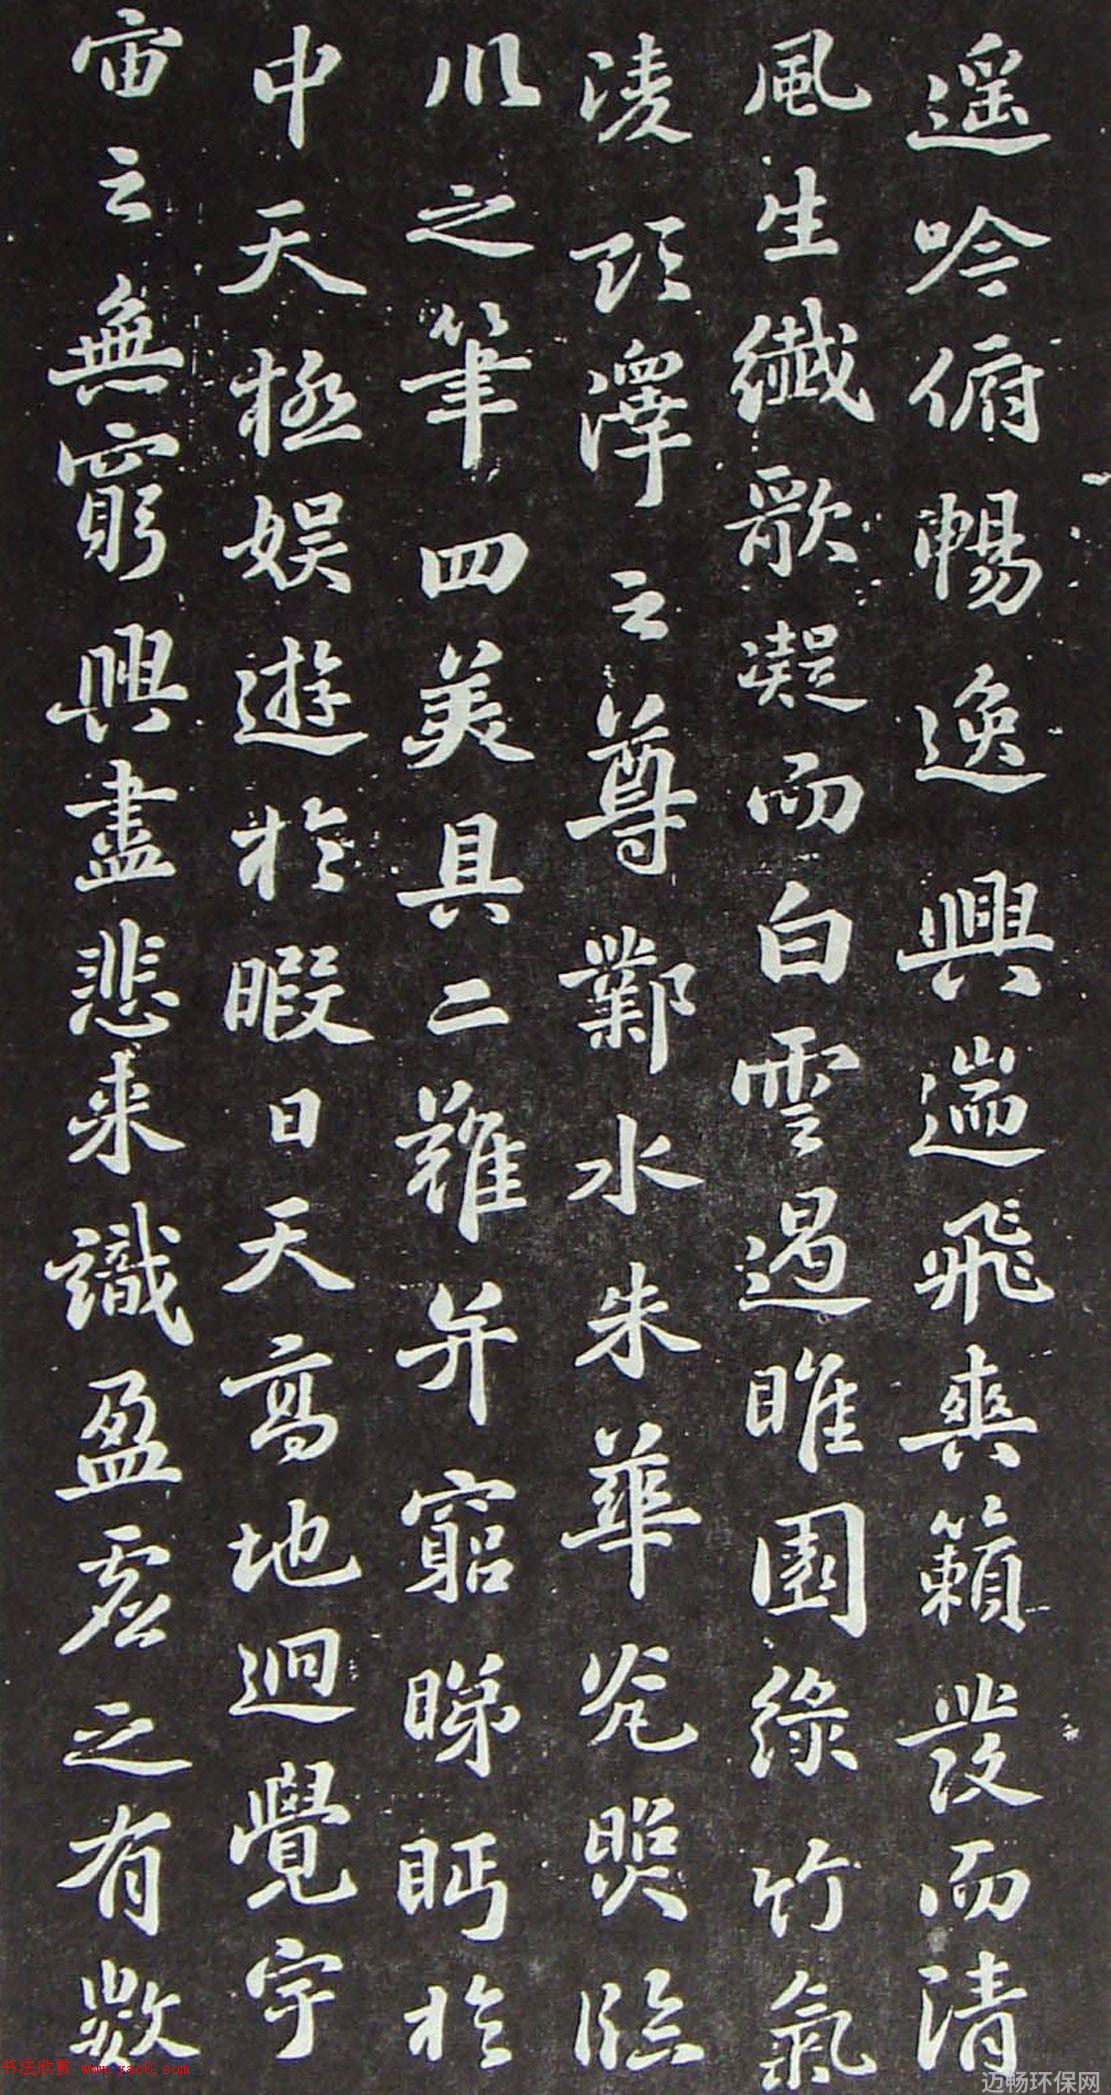 遥吟俯暢逸興遄飛爽籟發而清
風生纖歌凝而白雲遏睢園綠竹氣
淩彭澤之尊鄴水朱華光照臨
川之筆四美具二難并窮睇眄於
中天極娛遊於暇日天高地迥覺宇
宙之無窮興盡悲来識盈虛之有數
书法欣赏 www.yac8.com
迈畅环保网